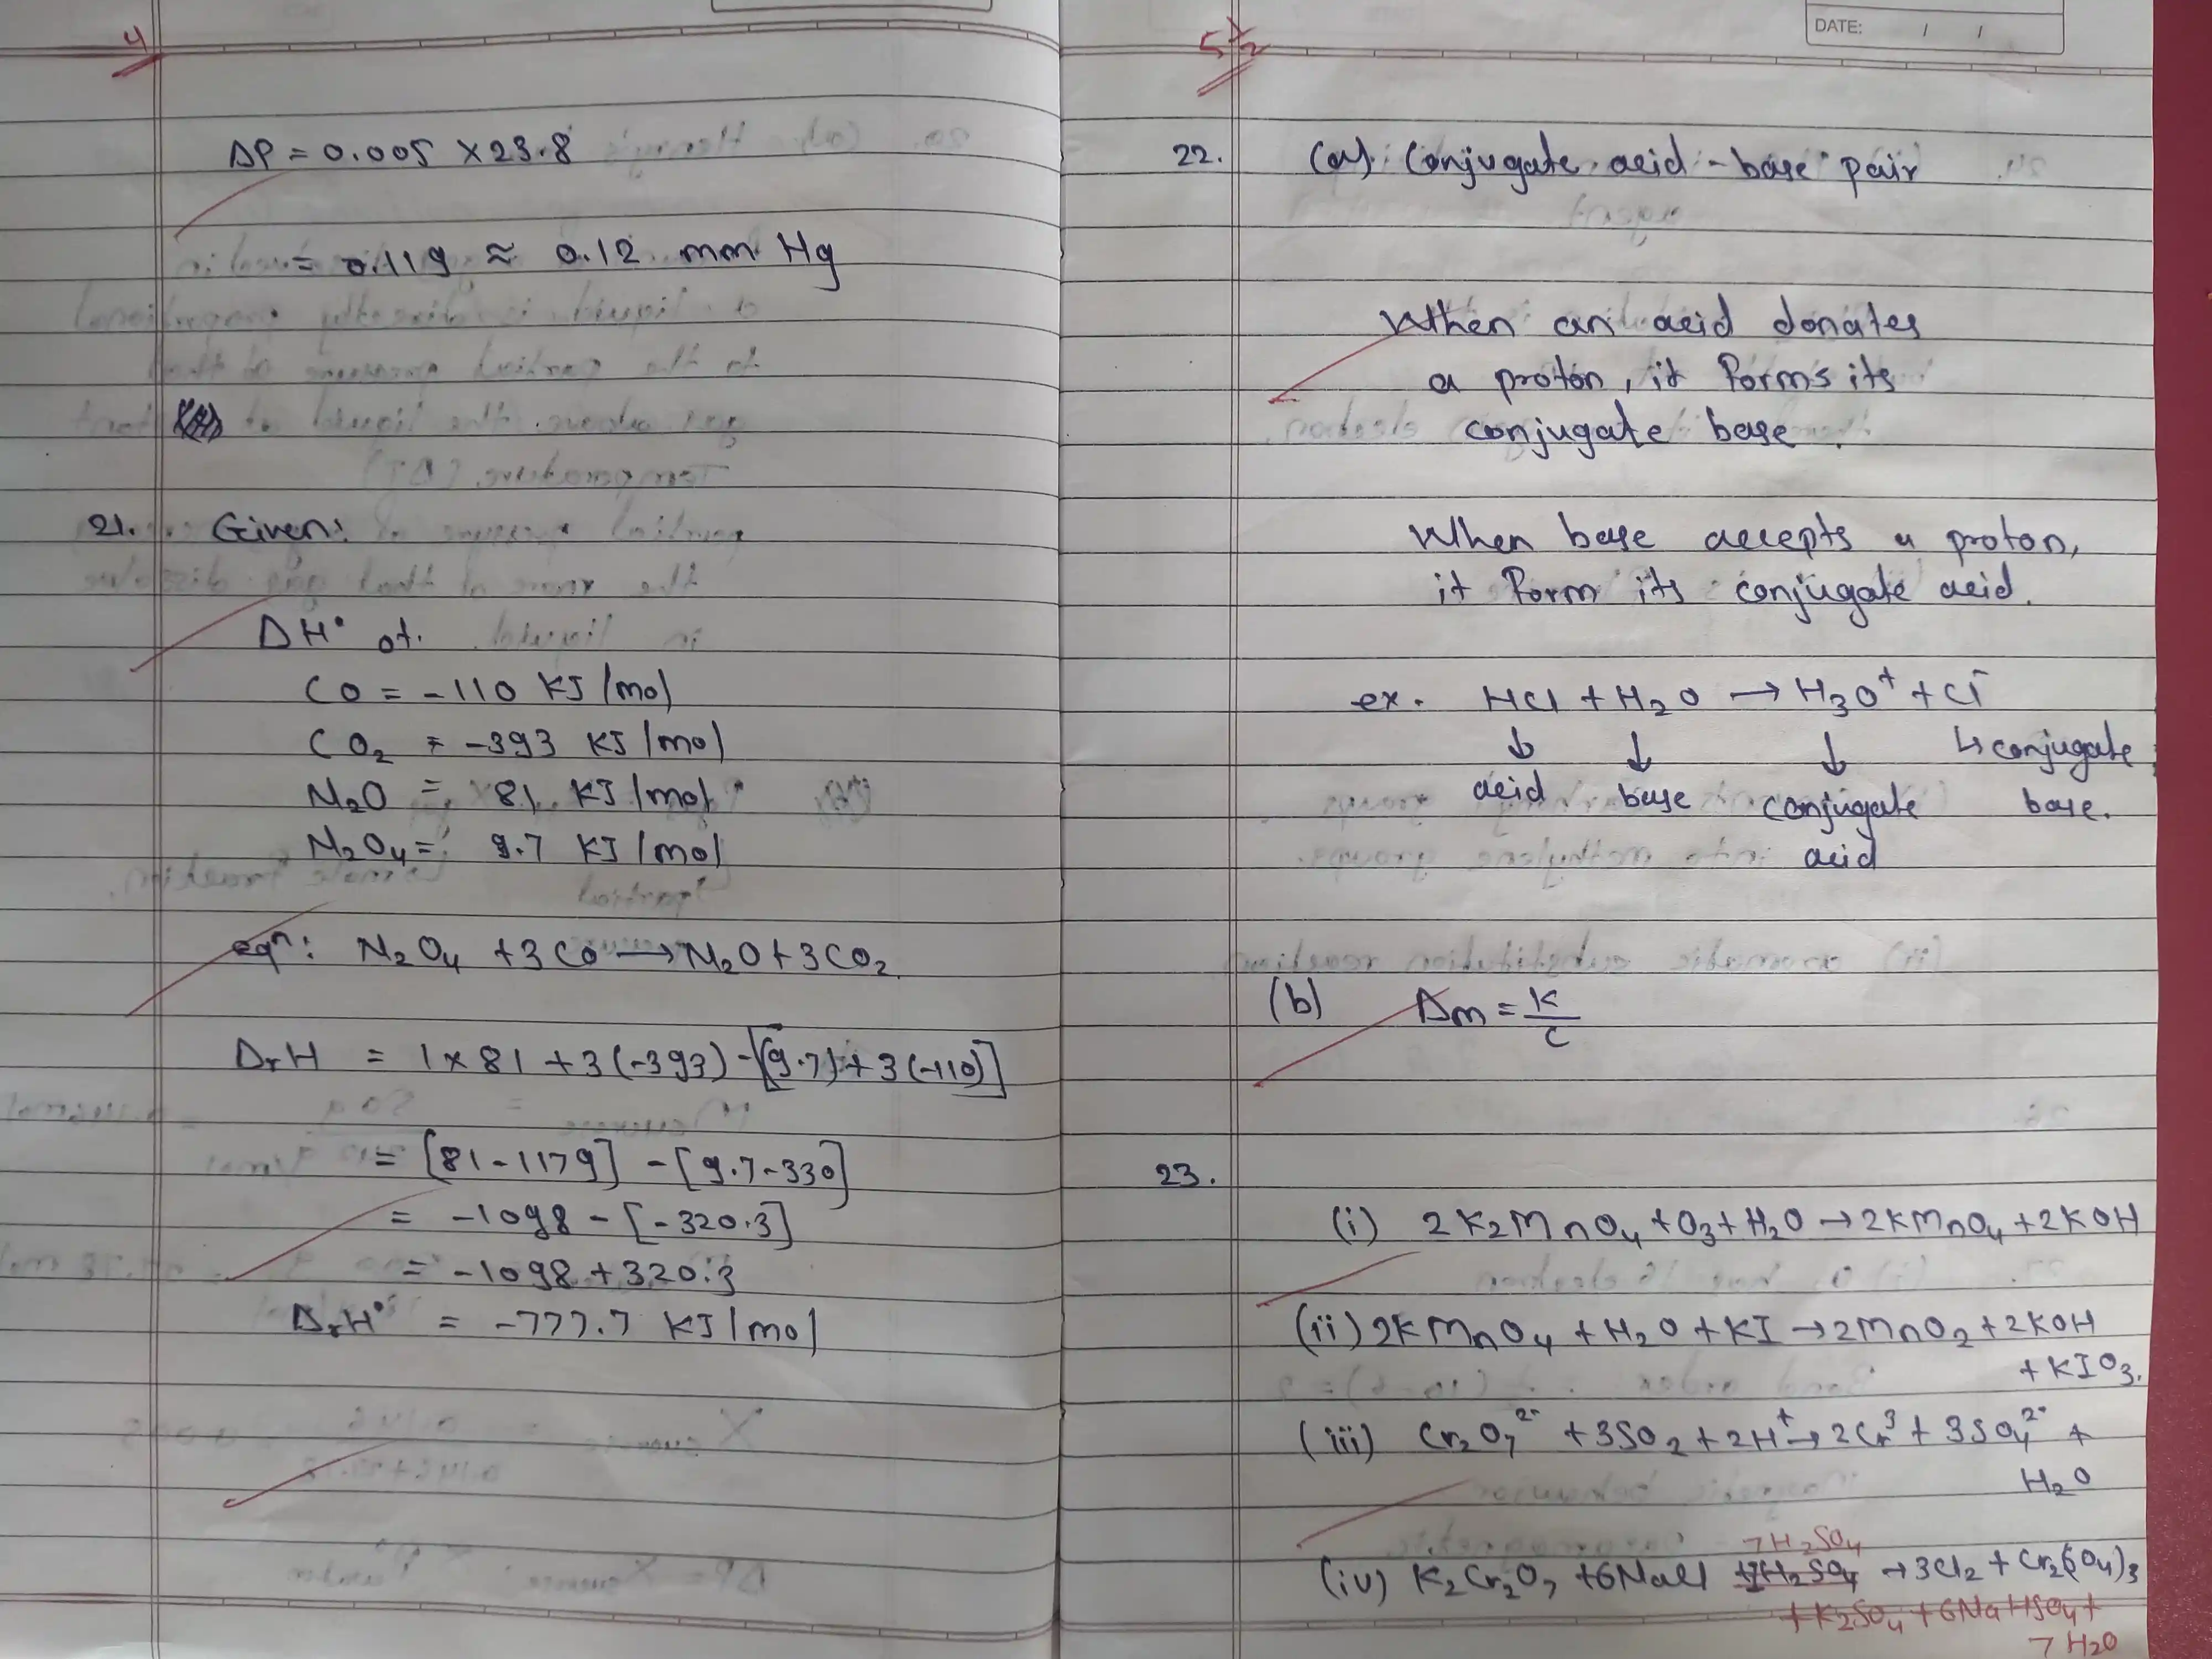 4
ΔP = 0.005 × 23.8
= 0.119 ≈ 0.12 mm Hg
21. Given:
ΔH° of.
CO = -110 KJ/mol
CO₂ = -393 KJ/mol
N₂O = 81 KJ/mol
N₂O₄ = 9.7 KJ/mol
eqⁿ: N₂O₄ + 3CO → N₂O + 3CO₂
ΔrH = 1 × 81 + 3(-393) - [(9.7) + 3(-110)]
= [81 - 1179] - [9.7 - 330]
= -1098 - [-320.3]
= -1098 + 320.3
ΔrH° = -777.7 KJ/mol
5½
DATE: / /
22. (a) Conjugate acid-base pair
When an acid donates
a proton, it forms its
conjugate base.
When base accepts a proton,
it form its conjugate acid.
ex. HCl + H₂O → H₃O⁺ + Cl⁻
↓ ↓ ↓ ↳ conjugate
acid base conjugate base.
acid
(b) Δm = K/C
23.
(i) 2K₂MnO₄ + O₃ + H₂O → 2KMnO₄ + 2KOH
(ii) 2KMnO₄ + H₂O + KI → 2MnO₂ + 2KOH
+ KIO₃.
(iii) Cr₂O₇²⁻ + 3SO₂ + 2H⁺ → 2Cr³ + 3SO₄²⁻ +
H₂O
7H₂SO₄
(iv) K₂Cr₂O₇ + 6NaCl + 7H₂SO₄ → 3Cl₂ + Cr₂(SO₄)₃
+ K₂SO₄ + 6NaHSO₄ +
7H₂O